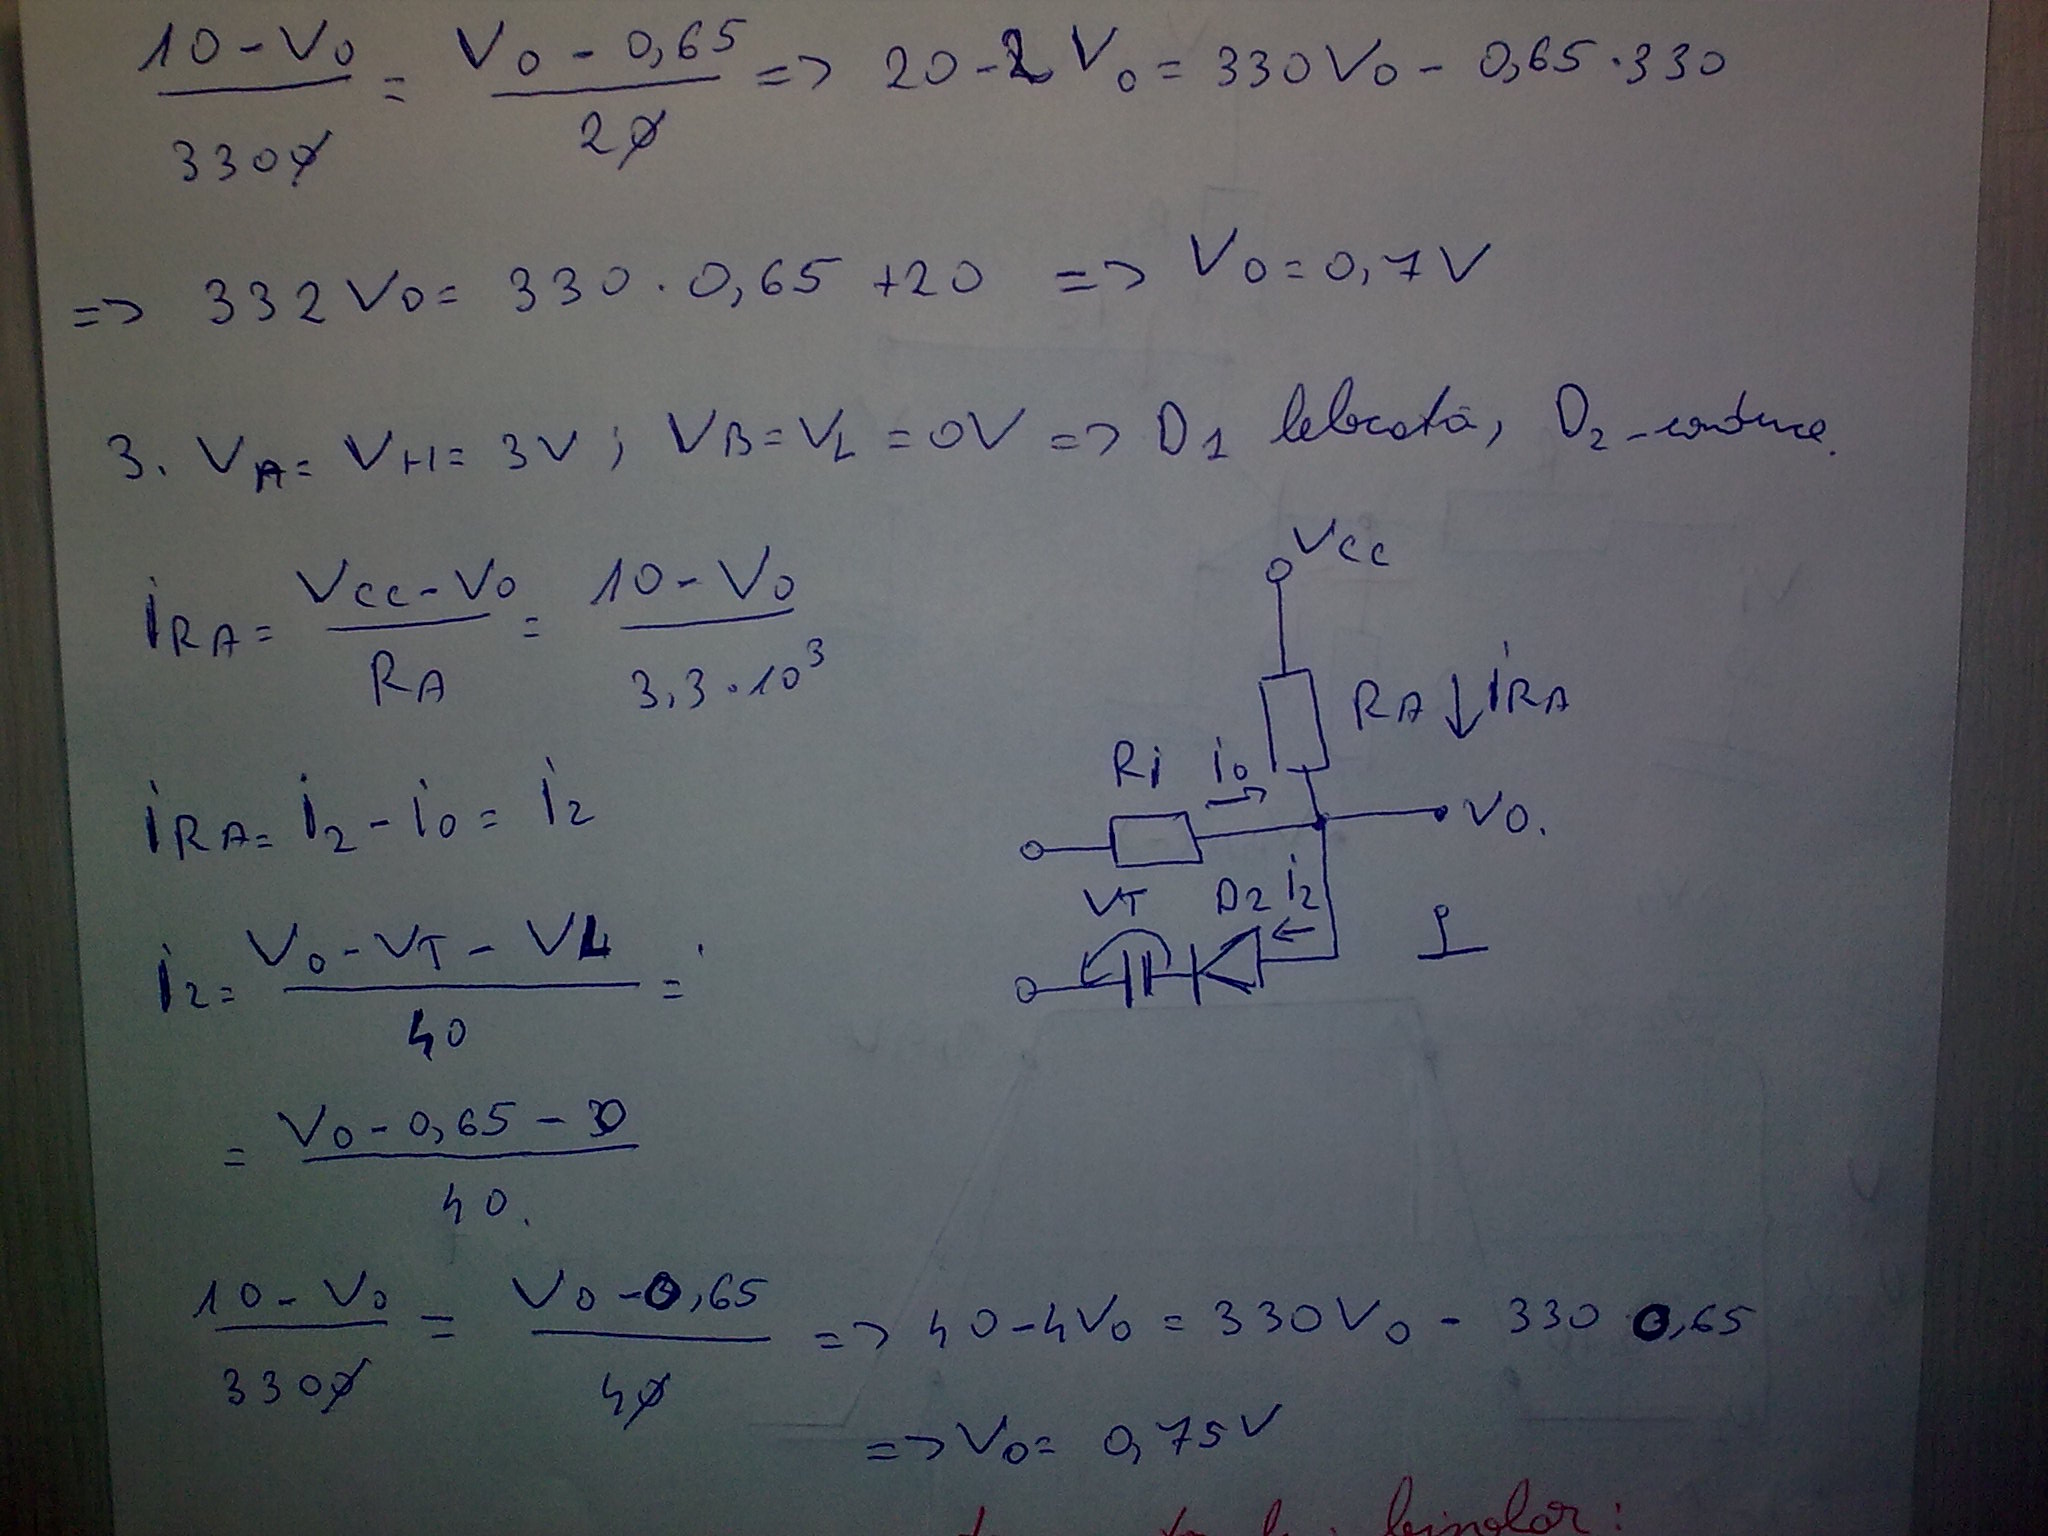 10 - V0 / 3300 = V0 - 0,65 / 20 => 20 - 2V0 = 330V0 - 0,65 · 330
=> 332V0 = 330 · 0,65 + 20 => V0 = 0,7V
3. VA = VH = 3V ; VB = VL = 0V => D1 blocată, D2 - conduce.
iRA = VCC - V0 / RA = 10 - V0 / 3,3 · 10³
VCC
RA ↓ iRA
Ri i0
iRA = i2 - i0 = i2
V0.
VT D2 i2
i2 = V0 - VT - VL / 40 =
= V0 - 0,65 - 0 / 40.
10 - V0 / 3300 = V0 - 0,65 / 40 => 40 - 4V0 = 330V0 - 330 · 0,65
=> V0 = 0,75V
bipolar: